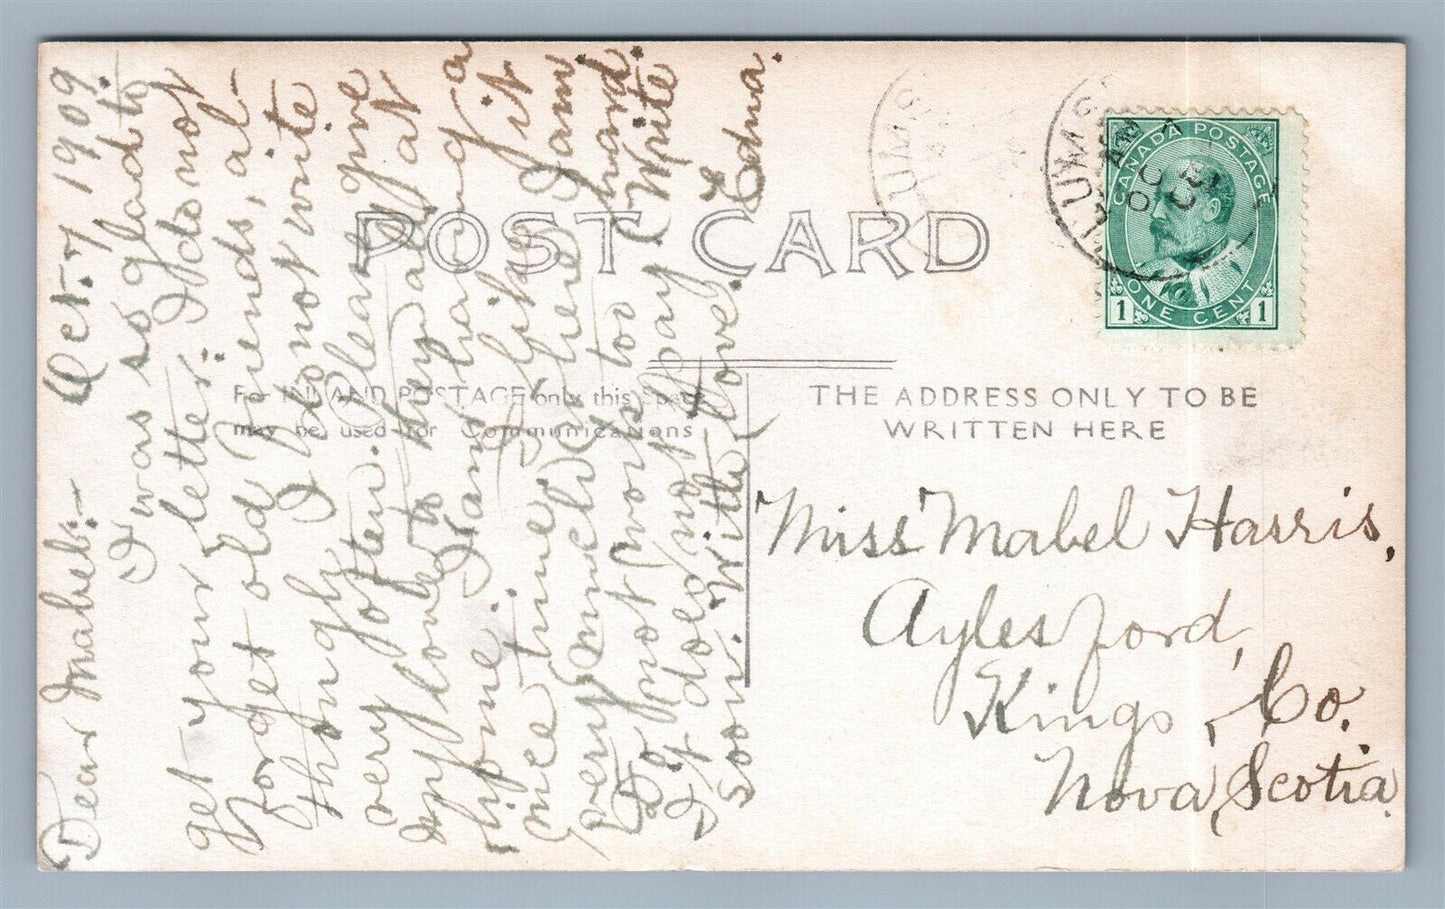 Oct. 7 1909.
Dear Mabel:-
I was so glad to
get your letter. I do not
forget old friends, al-
though I do not write
very often. Please give
my love to them all at
home. I am having a
fine time. I like it
very much here I am
Do not work too hard.
It does not pay. Write
soon. With love. Edna.
POST CARD
For INLAND POSTAGE only this Space
may be used for Communications
THE ADDRESS ONLY TO BE
WRITTEN HERE
CANADA POSTAGE
ONE CENT
1 1
AM
OC
Miss Mabel Harris,
Aylesford,
Kings, Co.
Nova, Scotia